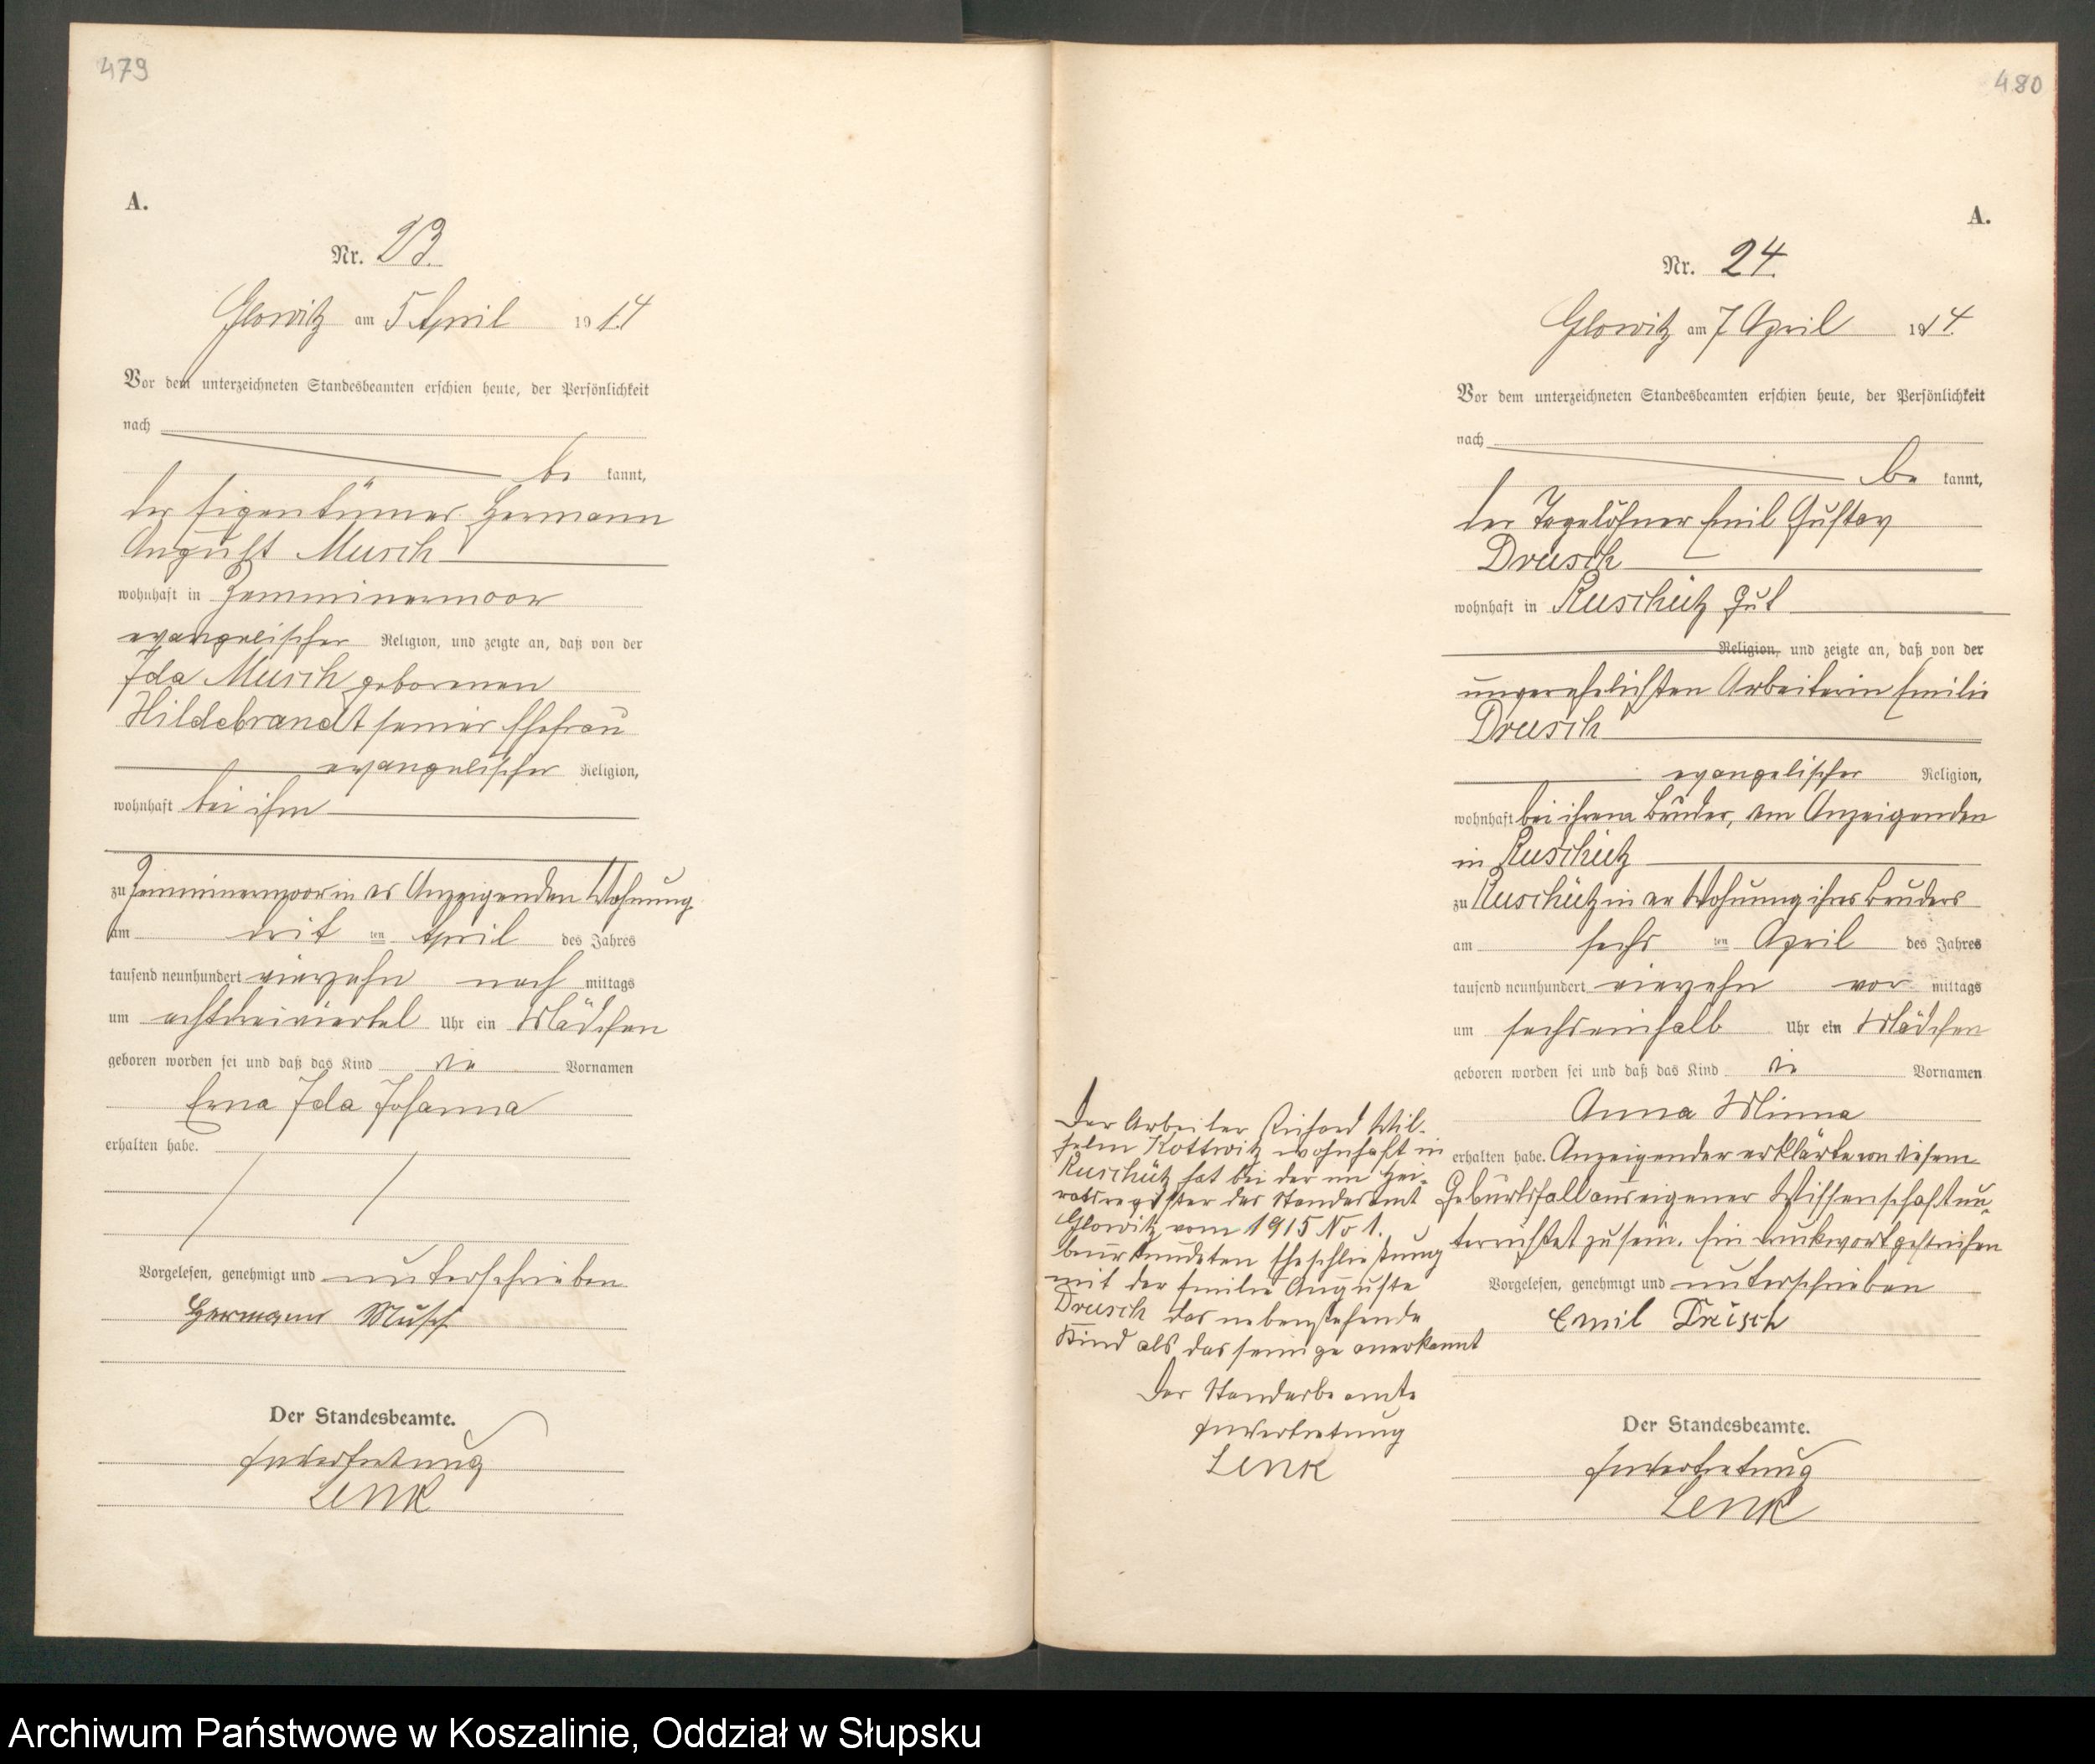 479
A.
Nr. 23.
Glowitz am 5 April 1914
Vor dem unterzeichneten Standesbeamten erschien heute, der Persönlichkeit
nach
be kannt,
der Eigentümer Hermann
August Musch
wohnhaft in Zemminermoor
evangelischer Religion, und zeigte an, daß von der
Ida Musch geborenen
Hildebrandt seiner Ehefrau
evangelischer Religion,
wohnhaft bei ihm
zu Zemminermoor in des Anzeigenden Wohnung
am ten April des Jahres
tausend neunhundert vierzehn nach mittags
um achtdreiviertel Uhr ein Mädchen
geboren worden sei und daß das Kind die Vornamen
Erna Ida Johanna
erhalten habe.
Vorgelesen, genehmigt und unterschrieben
Hermann Musch
Der Standesbeamte.
In Vertretung
Lenk
480
A.
Nr. 24.
Glowitz am 7 April 1914.
Vor dem unterzeichneten Standesbeamten erschien heute, der Persönlichkeit
nach
be kannt,
der Tagelöhner Emil Gustav
Drusch
wohnhaft in Ruschütz Gut
Religion, und zeigte an, daß von der
unverehelichten Arbeiterin Emilie
Drusch
evangelischer Religion,
wohnhaft bei ihrem Bruder, dem Anzeigenden
in Ruschütz
zu Ruschütz in der Wohnung ihres Bruders
am sechs ten April des Jahres
tausend neunhundert vierzehn vor mittags
um sechseinhalb Uhr ein Mädchen
geboren worden sei und daß das Kind die Vornamen
Anna Minna
erhalten habe. Anzeigender erklärte von diesem
Geburtsfall aus eigener Wissenschaft un-
terrichtet zu sein. Ein Druckwort gestrichen
Vorgelesen, genehmigt und unterschrieben
Emil Drusch
Der Standesbeamte.
In Vertretung
Lenk
Der Arbeiter Richard Wil-
helm Kottwitz wohnhaft in
Ruschütz hat bei der im Hei-
ratsregister des Standesamt
Glowitz vom 1915 No 1.
beurkundeten Eheschließung
mit der Emilie Auguste
Drusch das nebenstehende
Kind als das seinige anerkannt
Der Standesbeamte
In Vertretung
Lenk
Archiwum Państwowe w Koszalinie, Oddział w Słupsku